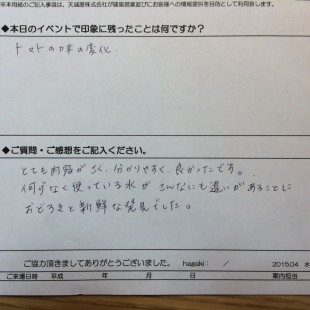 ※本用紙のご記入事項は、天城屋株式会社が建築営業並びにお客様への情報提供を目的として利用致します。
◆本日のイベントで印象に残ったことは何ですか？
トマトの味の変化
◆ご質問・ご感想をご記入ください。
とても内容がこく、分かりやすく、良かったです。
何げなく使っている水が こんなにも違いがあることに
おどろきと新鮮な発見でした。
ご協力頂きましてありがとうございました。 hagaki： ／ 2015.04 水
ご来場日時 平成 年 月 日 案内担当